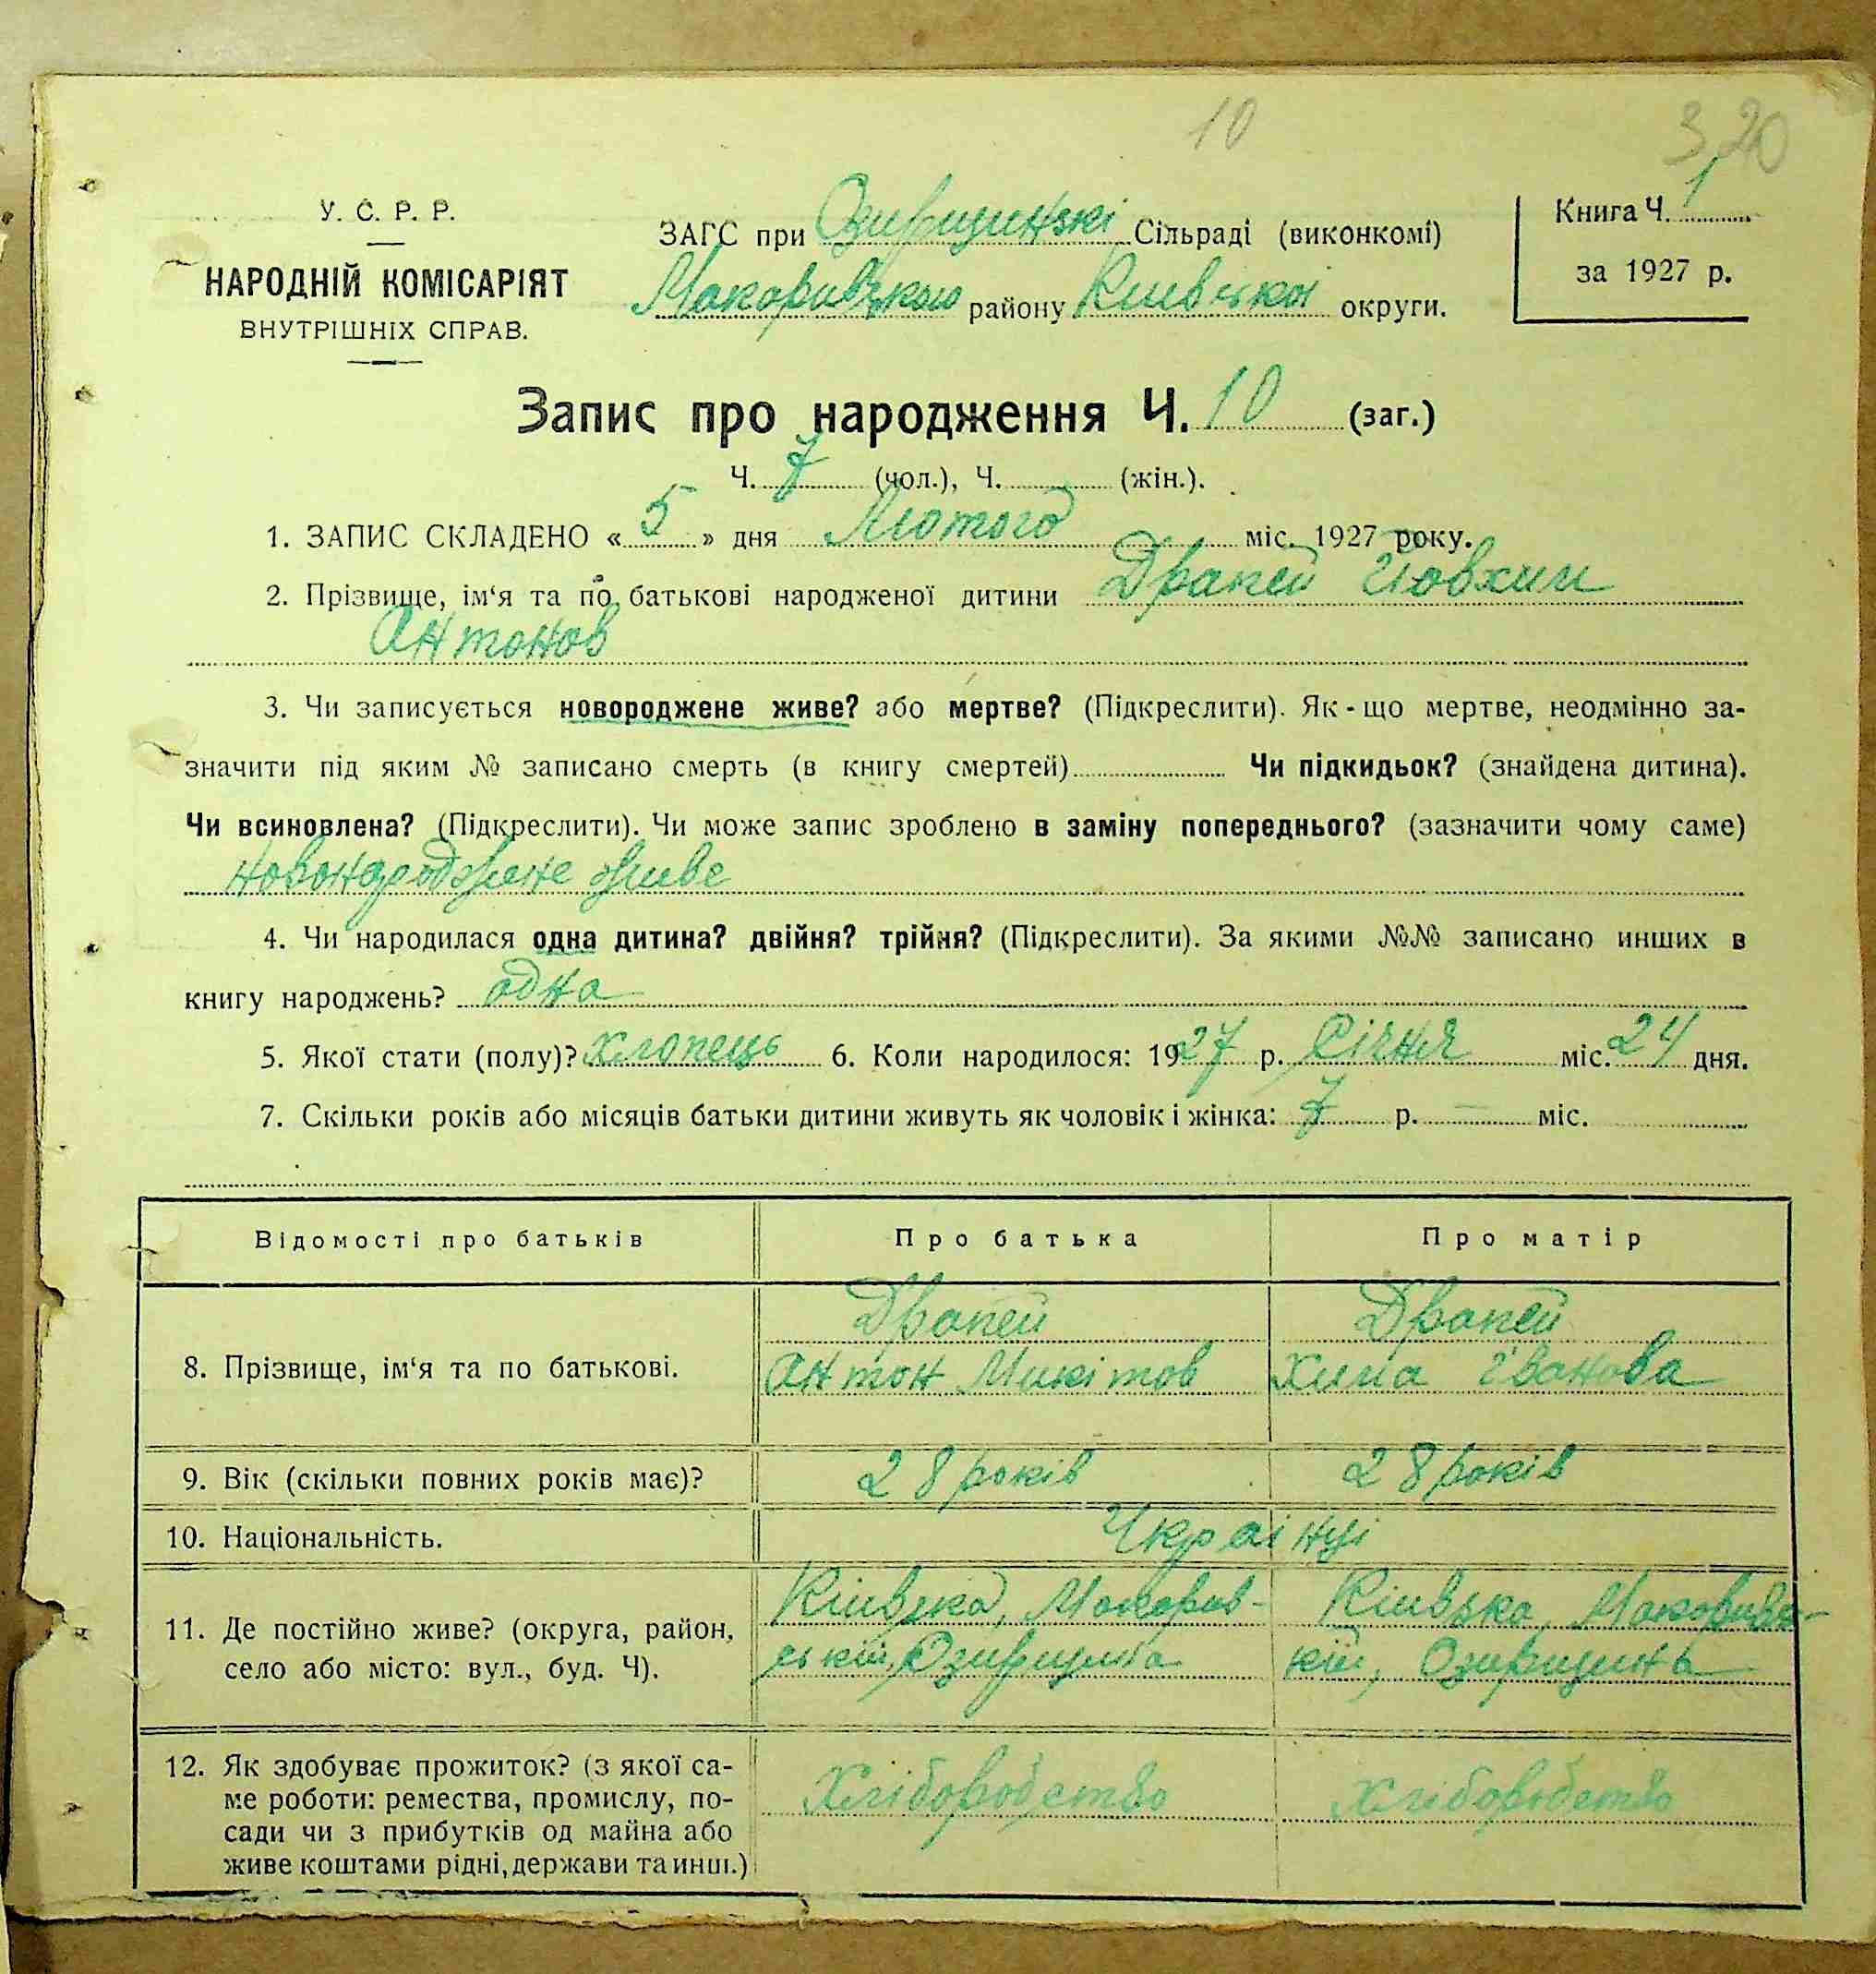 10
3 20
У. С. Р. Р.
НАРОДНІЙ КОМІСАРІЯТ
ВНУТРІШНІХ СПРАВ.
ЗАГС при Озирщинскі Сільраді (виконкомі)
Макаривзкого району Киівськоі округи.
Книга Ч. 1
за 1927 р.
Запис про народження Ч. 10 (заг.)
Ч. 7 (чол.), Ч. (жін.).
1. ЗАПИС СКЛАДЕНО « 5 » дня Лютого міс. 1927 року.
2. Прізвище, ім‘я та по батькові народженої дитини Драпей Йовхим
Антонов
3. Чи записується новороджене живе? або мертве? (Підкреслити). Як-що мертве, неодмінно за-
значити під яким № записано смерть (в книгу смертей) Чи підкидьок? (знайдена дитина).
Чи всиновлена? (Підкреслити). Чи може запис зроблено в заміну попереднього? (зазначити чому саме)
новонароджене живе
4. Чи народилася одна дитина? двійня? трійня? (Підкреслити). За якими №№ записано инших в
книгу народжень? одна
5. Якої стати (полу)? хлопець 6. Коли народилося: 1927 р. Січня міс. 24 дня.
7. Скільки років або місяців батьки дитини живуть як чоловік і жінка: 7 р. — міс.
Відомості про батьків Про батька Про матір
Драпей Драпей
8. Прізвище, ім‘я та по батькові. Антон Микітов Хима Іванова
9. Вік (скільки повних років має)? 28 років 28 років
10. Національність. Украінці
11. Де постійно живе? (округа, район,
село або місто: вул., буд. Ч).
Киівзка, Макарив-
ський, Озирщина
Киівзка, Макоривз-
кий, Озирщина
12. Як здобуває прожиток? (з якої са-
ме роботи: ремества, промислу, по-
сади чи з прибутків од майна або
живе коштами рідні, держави та инш.)
Хліборобство Хліборобство